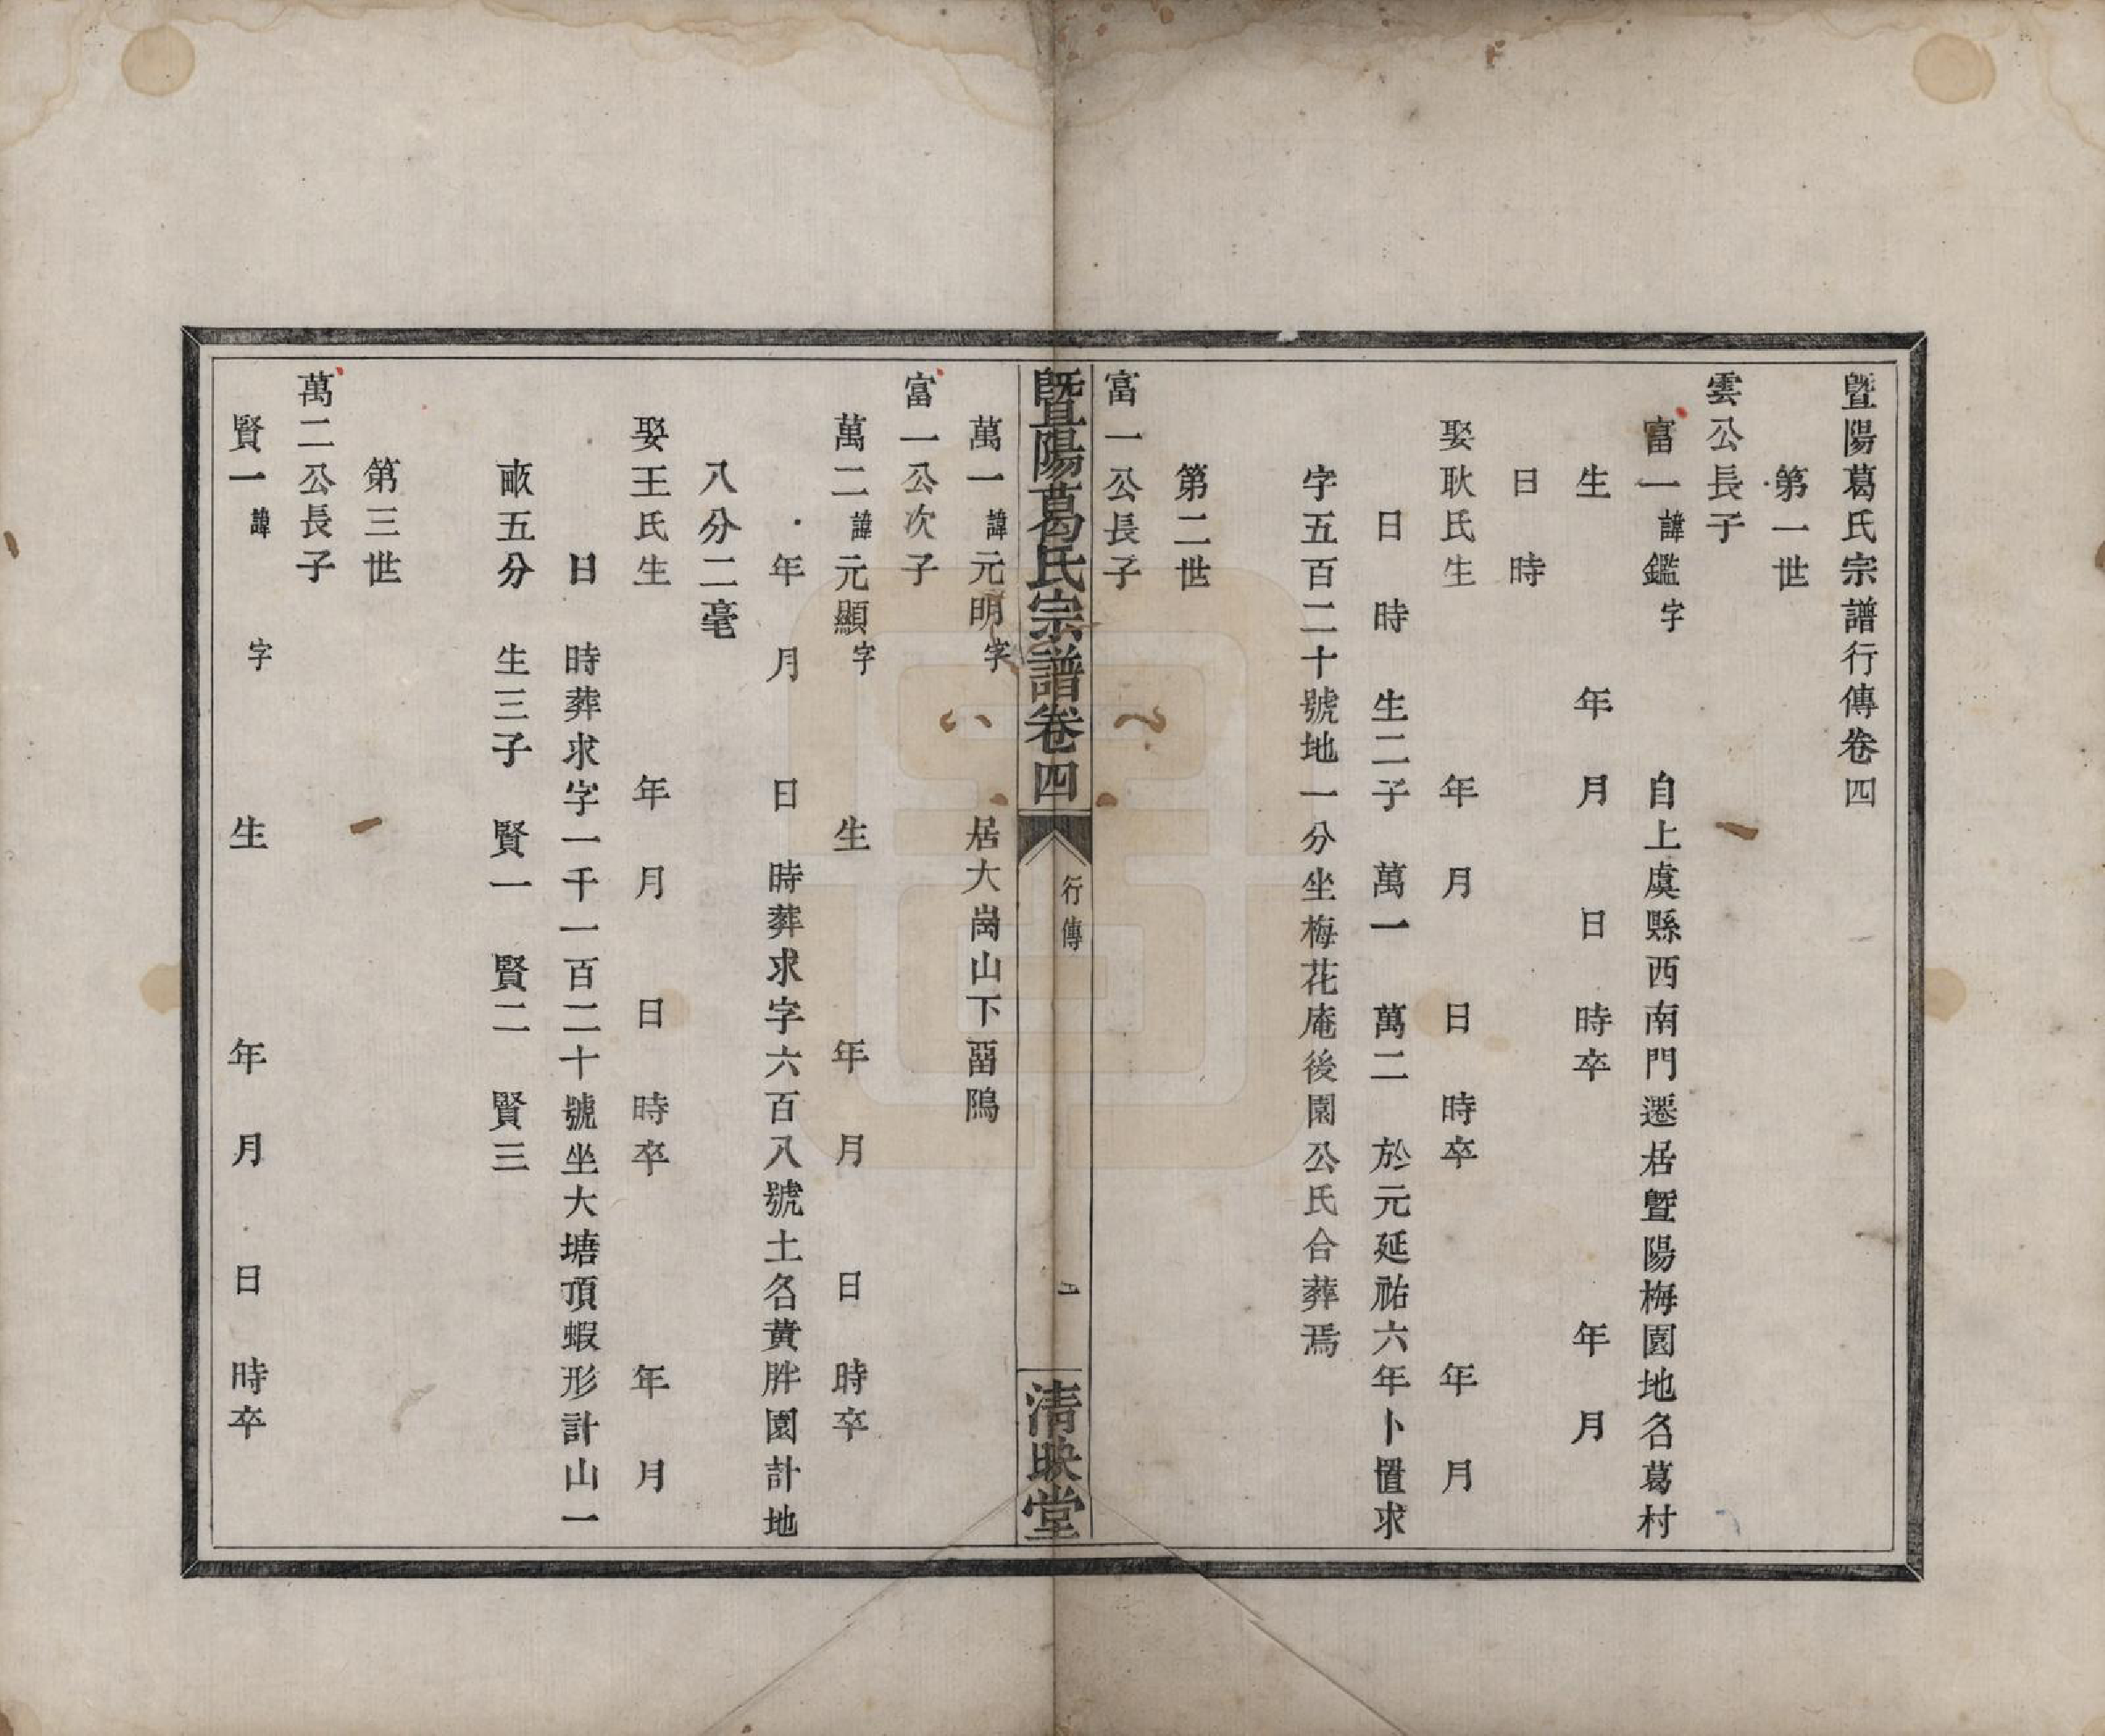 暨陽葛氏宗譜行傳卷四
第一世
雲公長子
富一諱鑑字 自上虞縣西南門遷居暨陽梅園地名葛村
生 年 月 日 時卒 年 月
日 時
娶耿氏生 年 月 日 時卒 年 月
日 時 生二子 萬一 萬二 於元延祐六年卜置求
字五百二十號地一分坐梅花庵後園公氏合葬焉
第二世
富一公長子
暨陽葛氏宗譜卷四 行傳 二 清映堂
萬一諱元明字 居大崗山下畱隖
富一公次子
萬二諱元顯字 生 年 月 日 時卒
年 月 日 時葬求字六百八號土名黃胖園計地
八分二毫
娶王氏生 年 月 日 時卒 年 月
日 時葬求字一千一百二十號坐大塘頂蝦形計山一
畝五分 生三子 賢一 賢二 賢三
第三世
萬二公長子
賢一諱 字 生 年 月 日 時卒